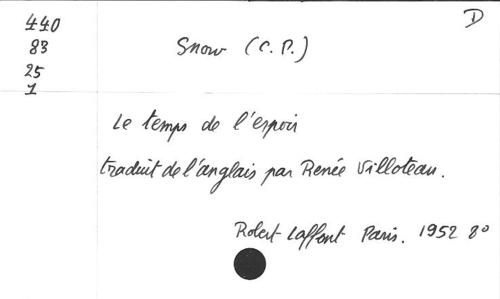 440
83
25
1
D
Snow (C. P.)
Le temps de l'espoir
traduit de l'anglais par Renée Villoteau.
Robert Laffont Paris. 1952 8º